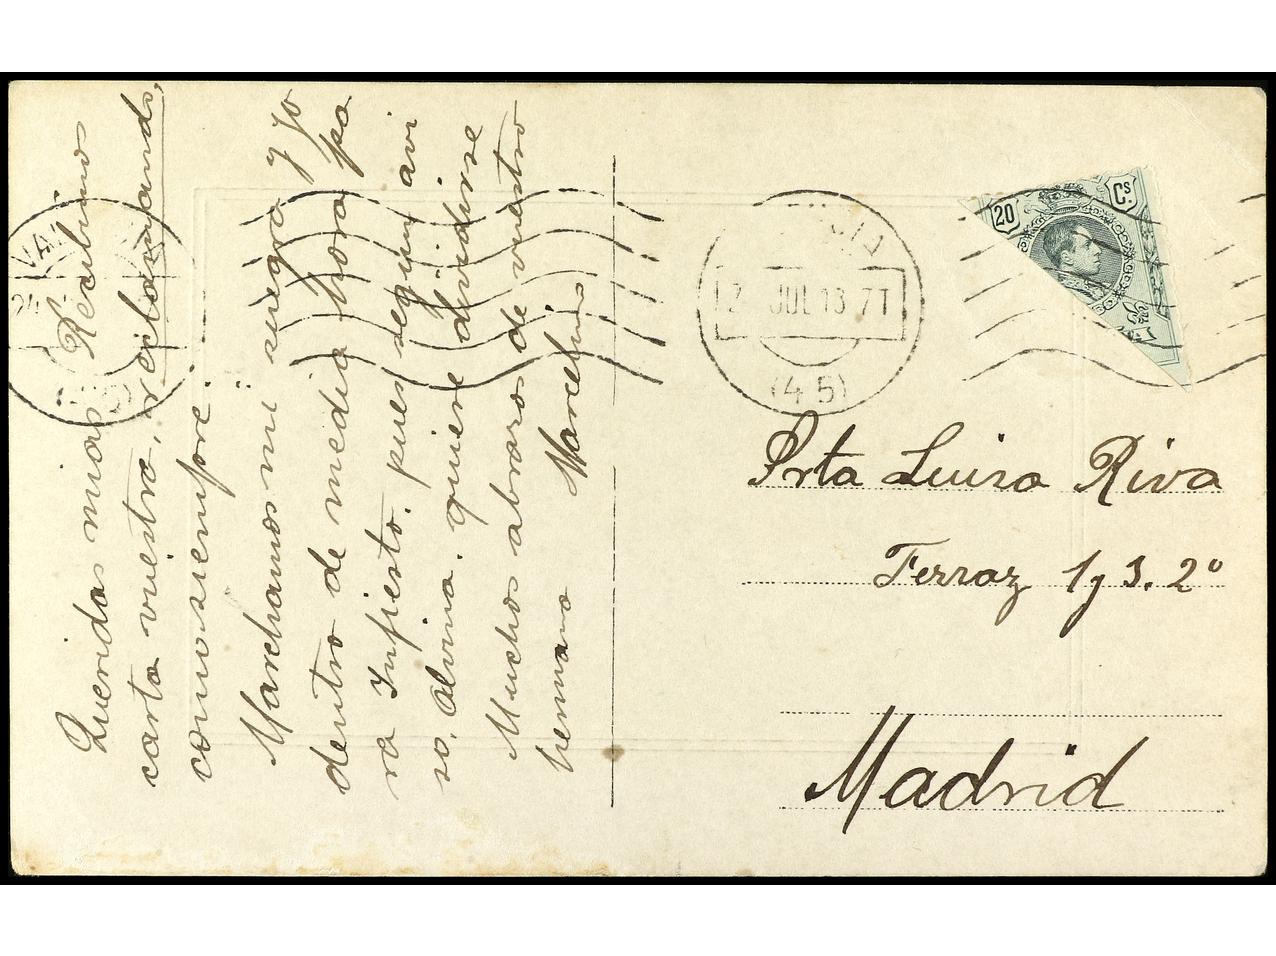 Queridas mias Recibimo
carta vuestra, reclamando,
como siempre
Marchamos mi suegra y yo
dentro de media hora pa
ra Infiesto, pues según avi
so, Alvina quiere dividirse
Muchos abrazos de vuestro
hermano Marcelino
20
Cs.
JUL 13 7T
(45)
Srta Luisa Riva
Ferraz 1 y 3. 2º
Madrid